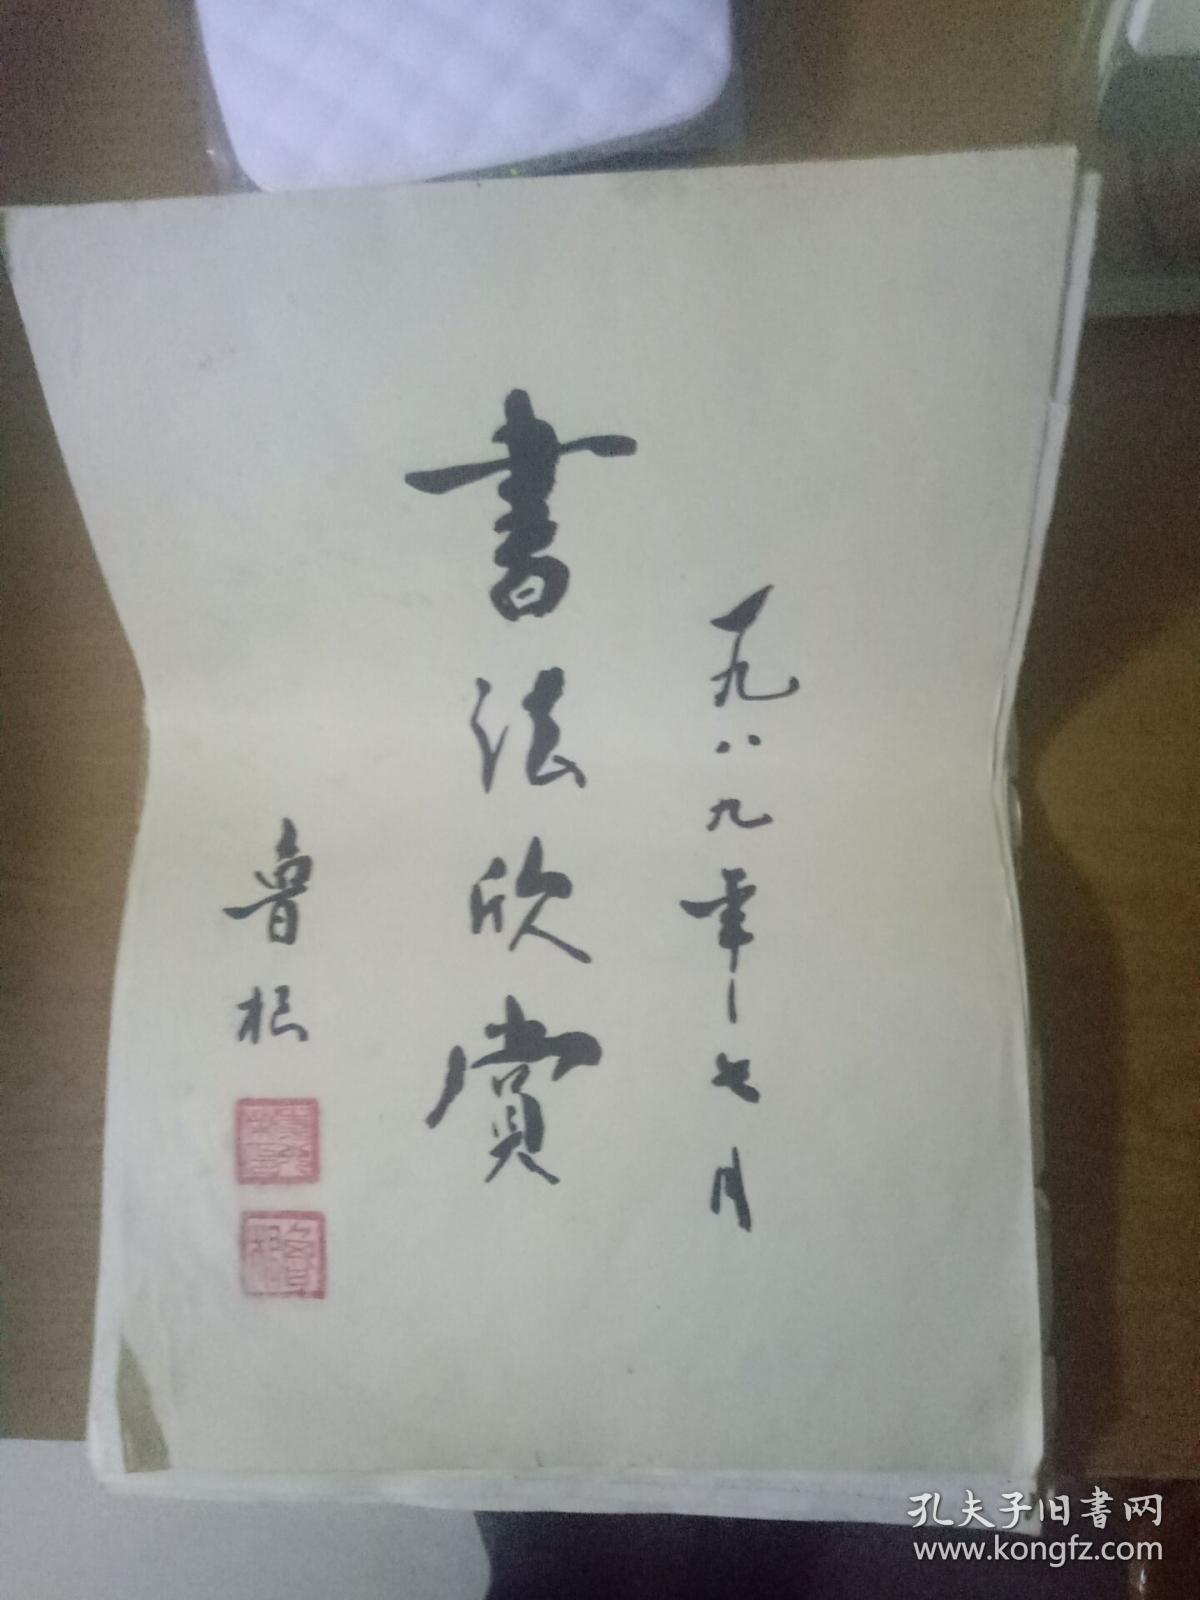 一九八九年七月
書法欣賞
魯根
孔夫子旧書网
www.kongfz.com